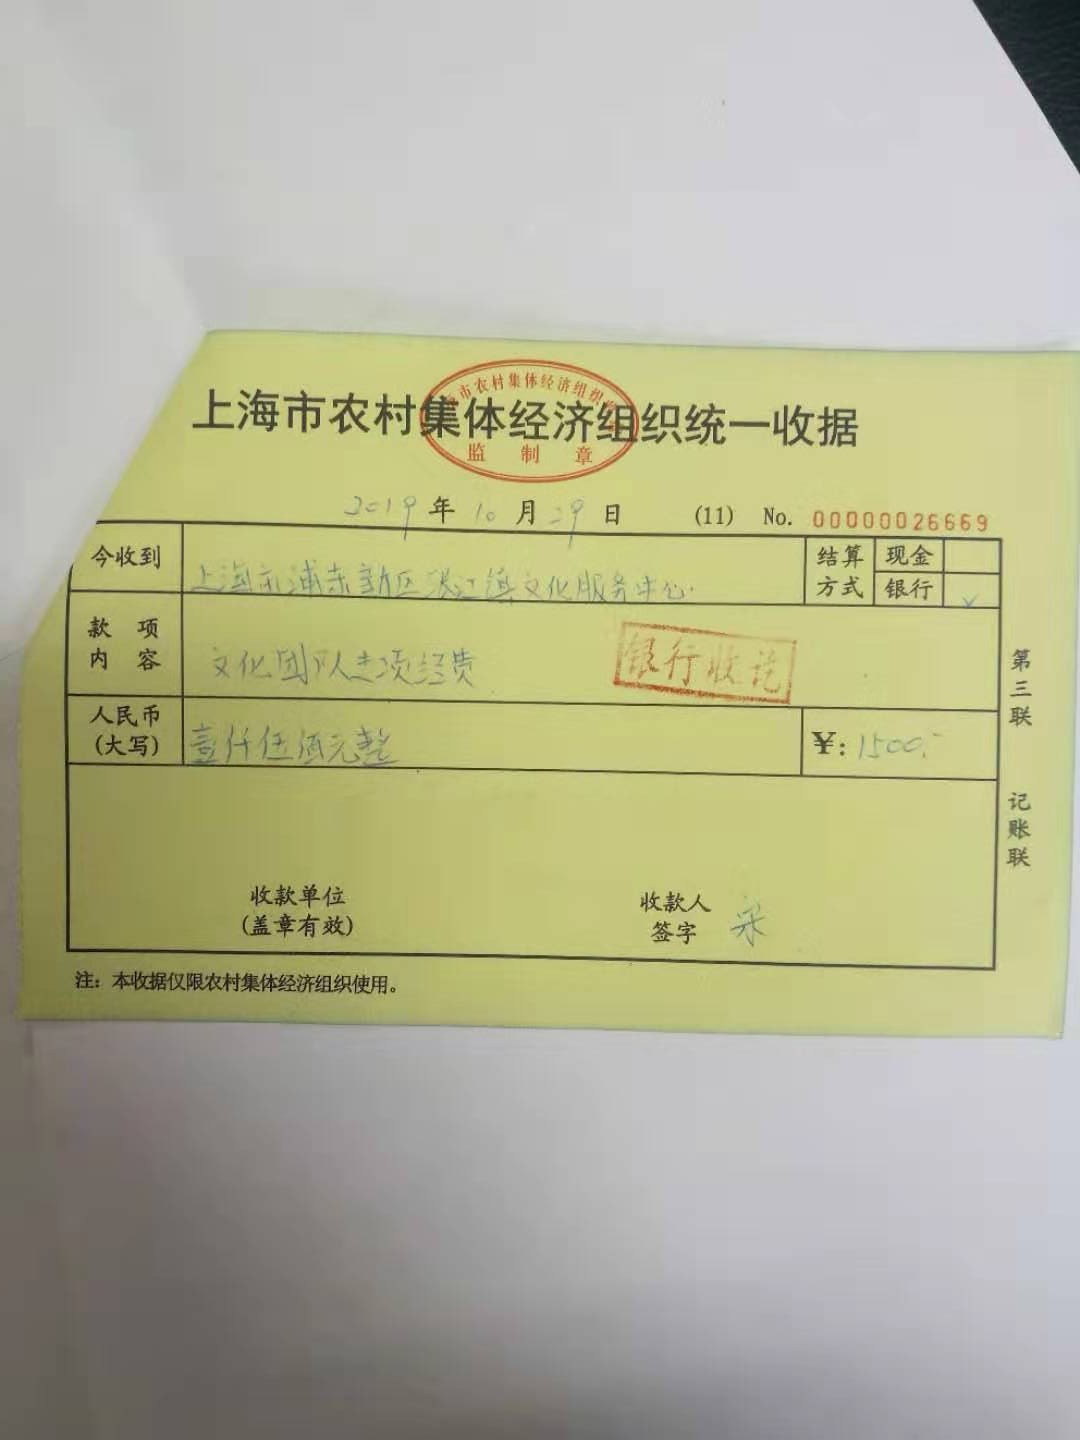 上海市农村集体经济组织统一收据
市农村集体经济组织收
监制章
2019年10月29日 (11) No. 00000026669
今收到 上海市浦东新区张江镇文化服务中心 结算方式 现金
银行 ✓
款项内容 文化团队专项经费 银行收讫
人民币(大写) 壹仟伍佰元整 ¥: 1500.-
收款单位 收款人
(盖章有效) 签字
注: 本收据仅限农村集体经济组织使用。
第三联 记账联